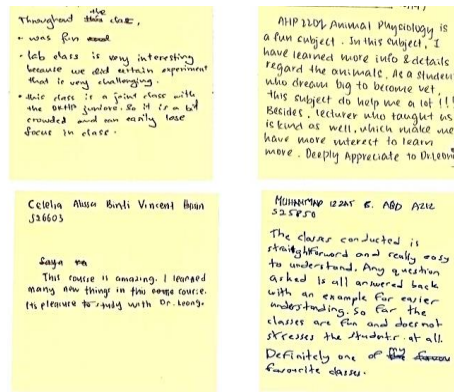 Throughout the class,
• was fun
• lab class is very interesting
because we did certain experiment
that is very challenging.
• this class is a joint class with
the DKHP juniors. So it is a bit
crowded and can easily lose
focus in class.
AHP 2202 Animal Physiology is
a fun subject. In this subject, I
have learned more info & details
regard the animals. As a student
who dream big to become vet,
this subject do help me a lot !!!
Besides, lecturer who taught us
is kind as well, which make me
have more interest to learn
more. Deeply Appreciate to Dr. Leong
Alissa Binti Vincent
S26603
Saya
This course is amazing. I learned
many new things in this course.
Its pleasure to study with Dr. Leong.
MUHAMMAD IZZAT B. ABD AZIZ
The classes conducted is
straightforward and really easy
to understand. Any question
asked is all answered back
with an example for easier
understanding. So far the
classes are fun and does not
stresses the students at all.
Definitely one of my
favourite classes.